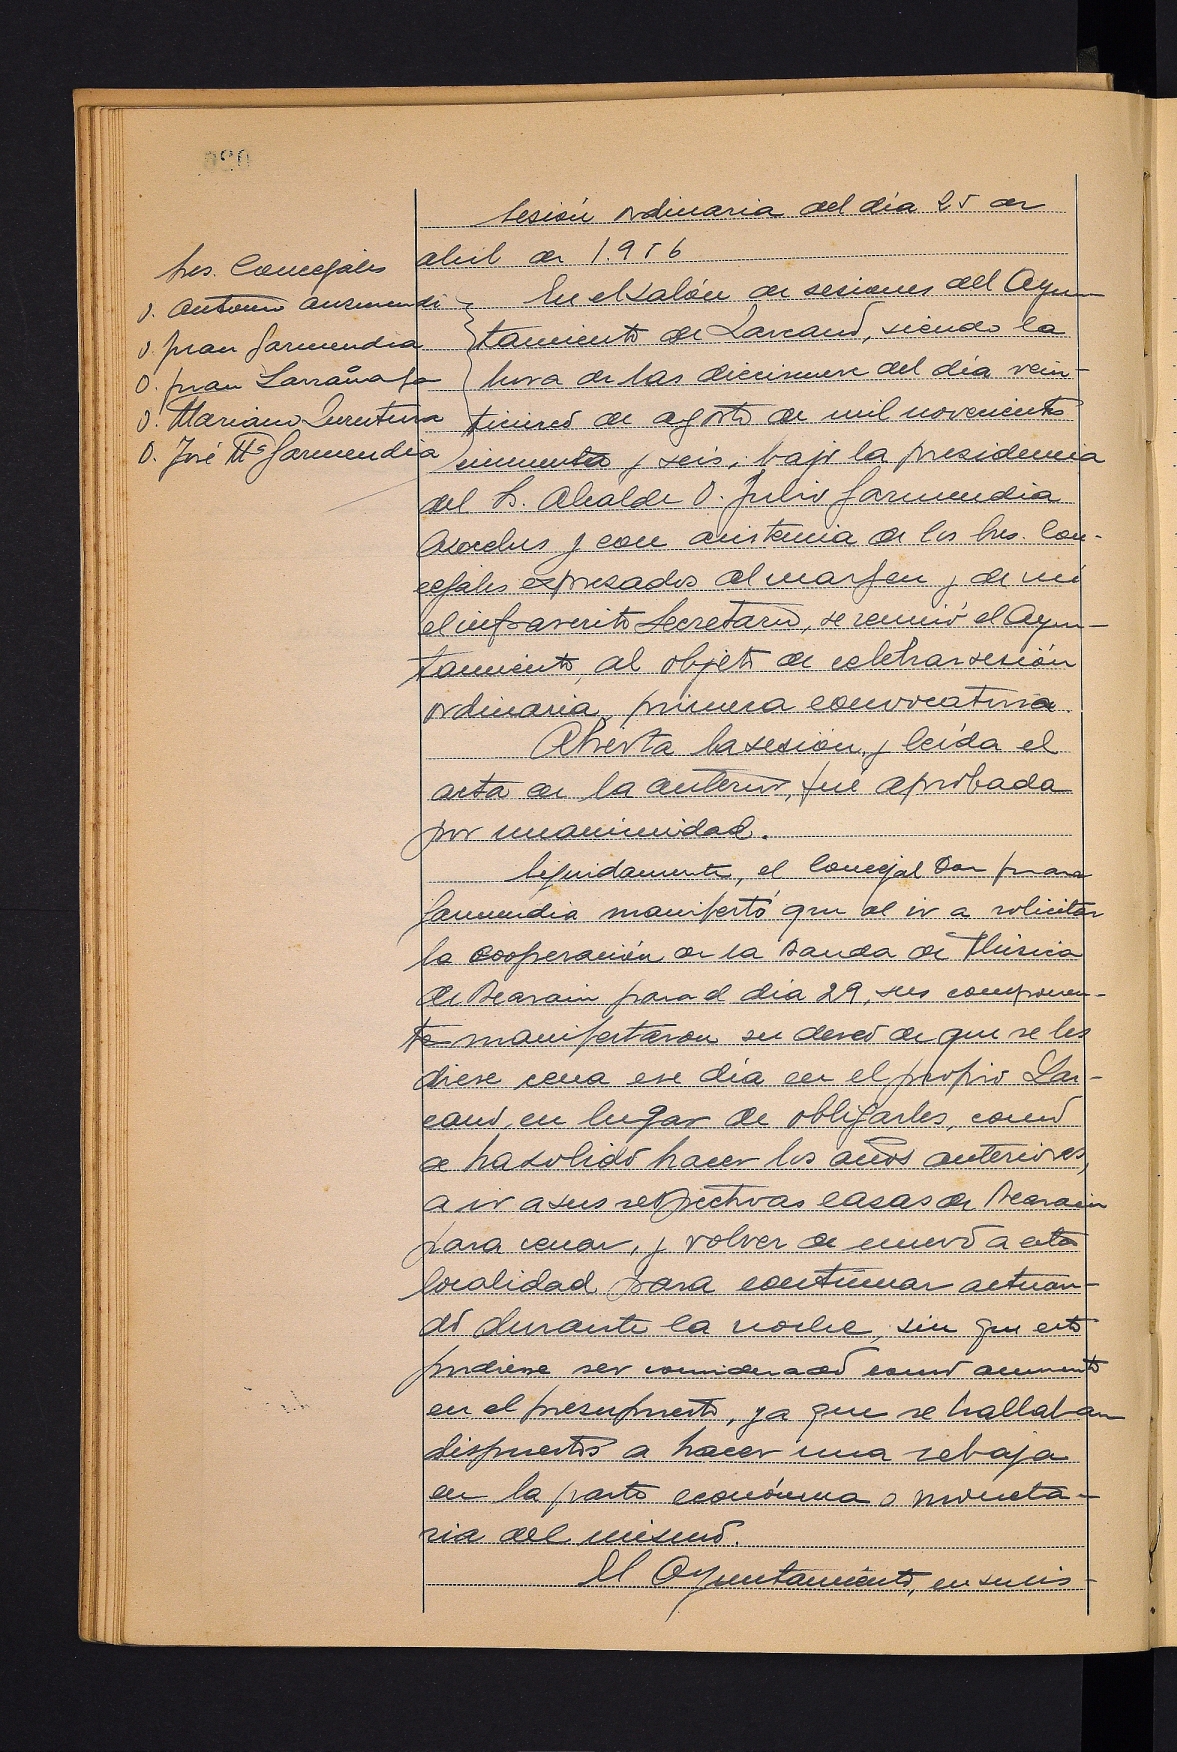 Sesión ordinaria del día 25 de
abril de 1.956
Sres. Concejales
D. Antonio Aurmendi
D. Juan Garmendia
D. Juan Larrañaga
D. Mariano
D. José Mª Garmendia
En el salón de sesiones del Ayun-
tamiento de Lazcano, siendo la
hora de las diecinueve del día vein-
ticinco de agosto de mil novecientos
cincuenta y seis, bajo la presidencia
del Sr. Alcalde D. Julio Garmendia
y con asistencia de los Sres. Con-
cejales expresados al margen y de mi
el infrascrito Secretario, se reunió el Ayun-
tamiento, al objeto de celebrar sesión
ordinaria, primera convocatoria.
Abierta la sesión, y leída el
acta de la anterior, fué aprobada
por unanimidad.
Seguidamente, el Concejal Don Juan
Garmendia manifestó que al ir a solicitar
la cooperación de la Banda de Música
de Beasain para el día 29, sus componen-
tes manifestaron su deseo de que se les
diese cena ese día en el propio Laz-
cano, en lugar de obligarles, como
se ha solido hacer los años anteriores,
a ir a sus respectivas casas de Beasain
para cenar, y volver de nuevo a esta
localidad para continuar actuan-
do durante la noche, sin que esto
pudiese ser considerado como aumento
en el presupuesto, ya que se hallaban
dispuestos a hacer una rebaja
en la parte económica o moneta-
ria del mismo.
El Ayuntamiento, en su vis-